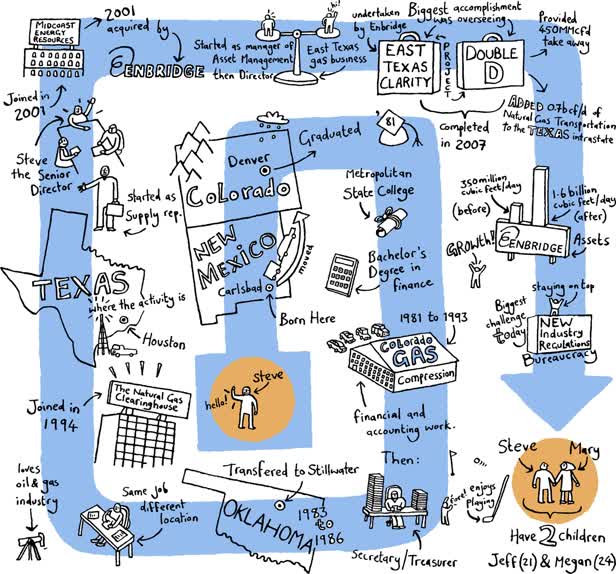 Steve
hello!
Born Here
Carlsbad
NEW
MEXICO
moved
Colorado
Denver
Graduated
'81
Metropolitan
State College
Bachelor's
Degree in
finance
1981 to 1993
Colorado
GAS
Compression
financial and
accounting work.
Then:
Secretary/Treasurer
fore!
enjoys
playing
Transfered to Stillwater
OKLAHOMA
1983
to
1986
Same job
different
location
loves
oil & gas
industry
Joined in
1994
The Natural Gas
Clearinghouse
Houston
where the activity is
TEXAS
Started as
Supply rep.
Steve
the Senior
Director
Joined in
2001
MIDCOAST
ENERGY
RESOURCES
2001
acquired by
ENBRIDGE
Started as manager of
Asset Management
then Director
East Texas
gas business
undertaken
by Enbridge
Biggest accomplishment
was overseeing
EAST
TEXAS
CLARITY
PROJECT
DOUBLE
D
Provided
450MMcfd
take away
completed
in 2007
ADDED 0.7bcf/d of
Natural Gas Transportation
to the TEXAS intrastate
350 million
cubic feet/day
(before)
1.6 billion
cubic feet/day
(after)
ENBRIDGE
Assets
GROWTH!
staying on top
Biggest
challenge
today
NEW
Industry
Regulations
Bureaucracy
Steve
Mary
Have 2 children
Jeff (21) & Megan (24)